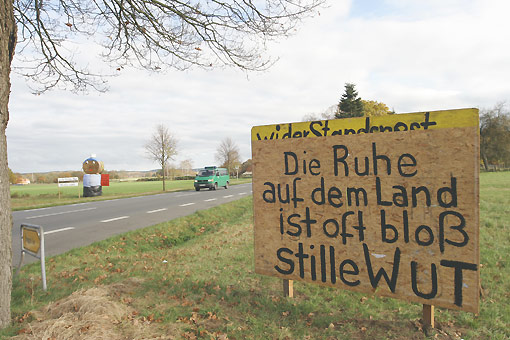 widerStandsnest
Die Ruhe
auf dem Land
ist oft bloß
stille WUT